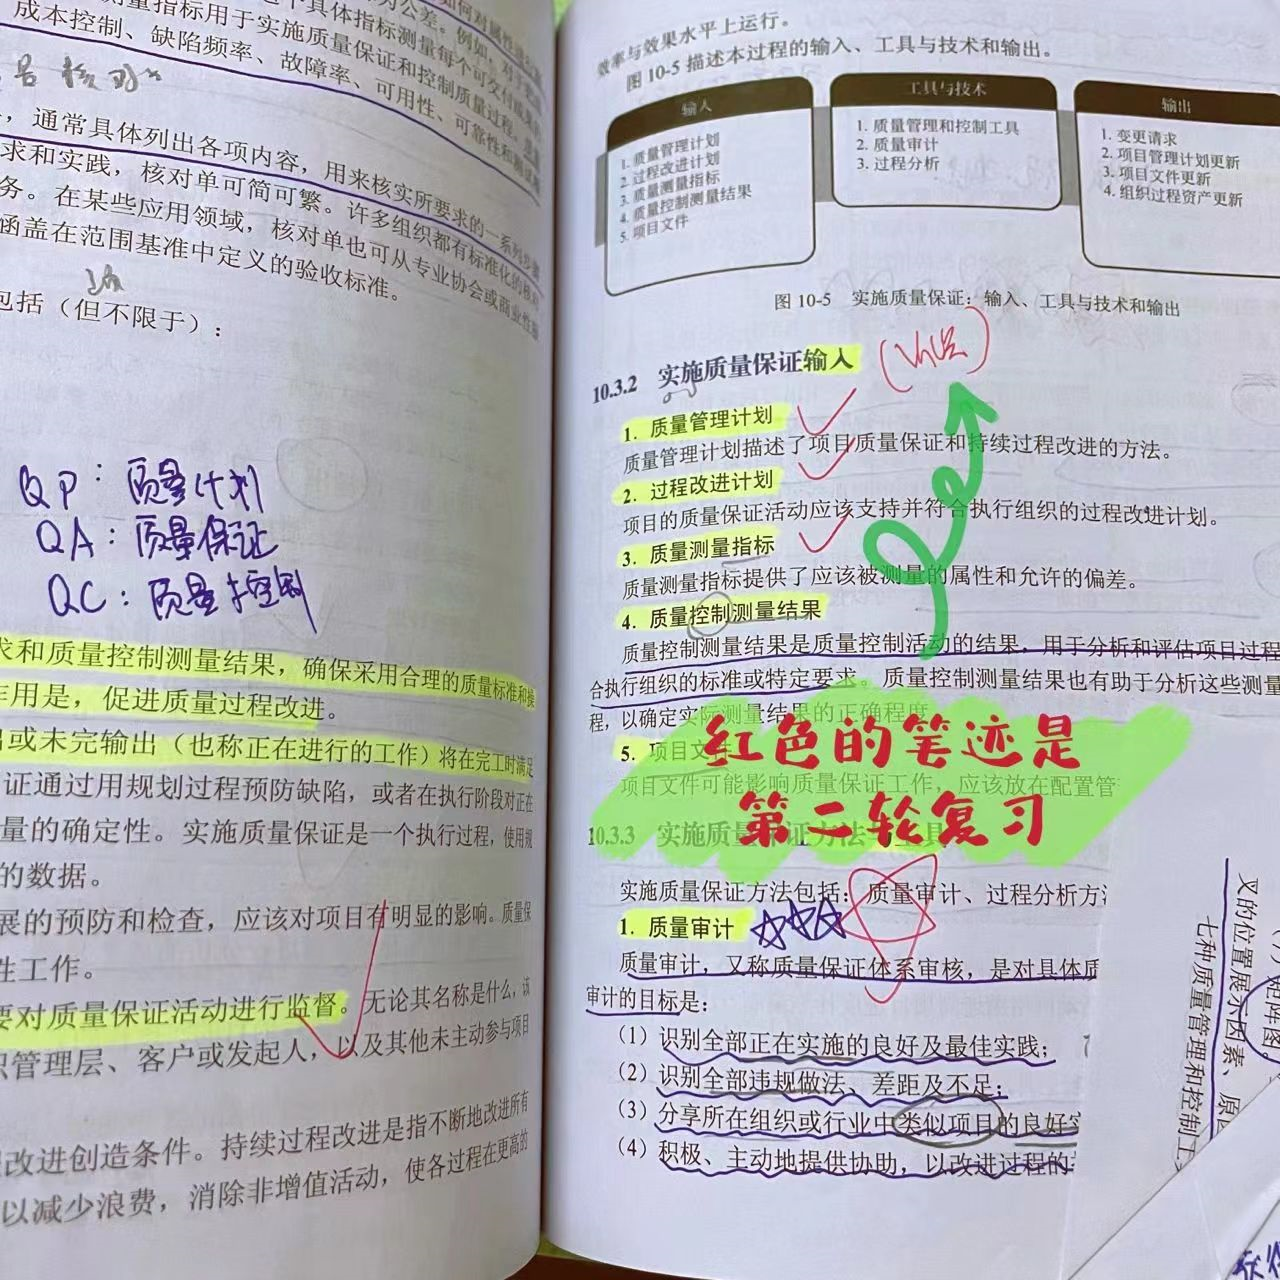 为公差。例如,对于
测量指标用于实施质量保证和控制质量过程。质量
成本控制、缺陷频率、故障率、可用性、可靠性和
,通常具体列出各项内容,用来核实所要求的一系列步骤
求和实践,核对单可简可繁。许多组织都有标准化的核对
务。在某些应用领域,核对单也可从专业协会或商业性服
涵盖在范围基准中定义的验收标准。
包括(但不限于):
QP:质量计划
QA:质量保证
QC:质量控制
求和质量控制测量结果,确保采用合理的质量标准和操
作用是,促进质量过程改进。
出或未完输出(也称正在进行的工作)将在完工时满足
证通过用规划过程预防缺陷,或者在执行阶段对正在
量的确定性。实施质量保证是一个执行过程,使用规
的数据。
展的预防和检查,应该对项目有明显的影响。质量保
性工作。
要对质量保证活动进行监督。无论其名称是什么,该
织管理层、客户或发起人,以及其他未主动参与项目
改进创造条件。持续过程改进是指不断地改进所有
以减少浪费,消除非增值活动,使各过程在更高的
效率与效果水平上运行。
图 10-5 描述本过程的输入、工具与技术和输出。
输入
1. 质量管理计划
2. 过程改进计划
3. 质量测量指标
4. 质量控制测量结果
5. 项目文件
工具与技术
1. 质量管理和控制工具
2. 质量审计
3. 过程分析
输出
1. 变更请求
2. 项目管理计划更新
3. 项目文件更新
4. 组织过程资产更新
图 10-5 实施质量保证:输入、工具与技术和输出
10.3.2 实施质量保证输入
1. 质量管理计划
质量管理计划描述了项目质量保证和持续过程改进的方法。
2. 过程改进计划
项目的质量保证活动应该支持并符合执行组织的过程改进计划。
3. 质量测量指标
质量测量指标提供了应该被测量的属性和允许的偏差。
4. 质量控制测量结果
质量控制测量结果是质量控制活动的结果,用于分析和评估项目过程
合执行组织的标准或特定要求。质量控制测量结果也有助于分析这些测量
程,以确定实际测量结果的正确程度
5. 项目文件
项目文件可能影响质量保证工作,应该放在配置管
红色的笔迹是
第二轮复习
10.3.3 实施质量保证方法
实施质量保证方法包括:质量审计、过程分析方
1. 质量审计
质量审计,又称质量保证体系审核,是对具体质
审计的目标是:
(1)识别全部正在实施的良好及最佳实践;
(2)识别全部违规做法、差距及不足;
(3)分享所在组织或行业中类似项目的良好实
(4)积极、主动地提供协助,以改进过程的
矩阵图。
叉的位置展示因素、原
七种质量管理和控制工